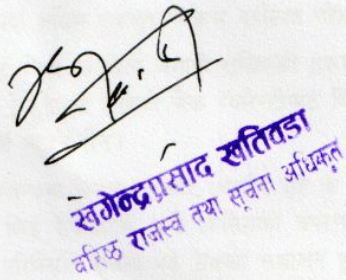 खगेन्द्रप्रसाद खतिवडा
वरिष्ठ राजस्व तथा सूचना अधिकृत